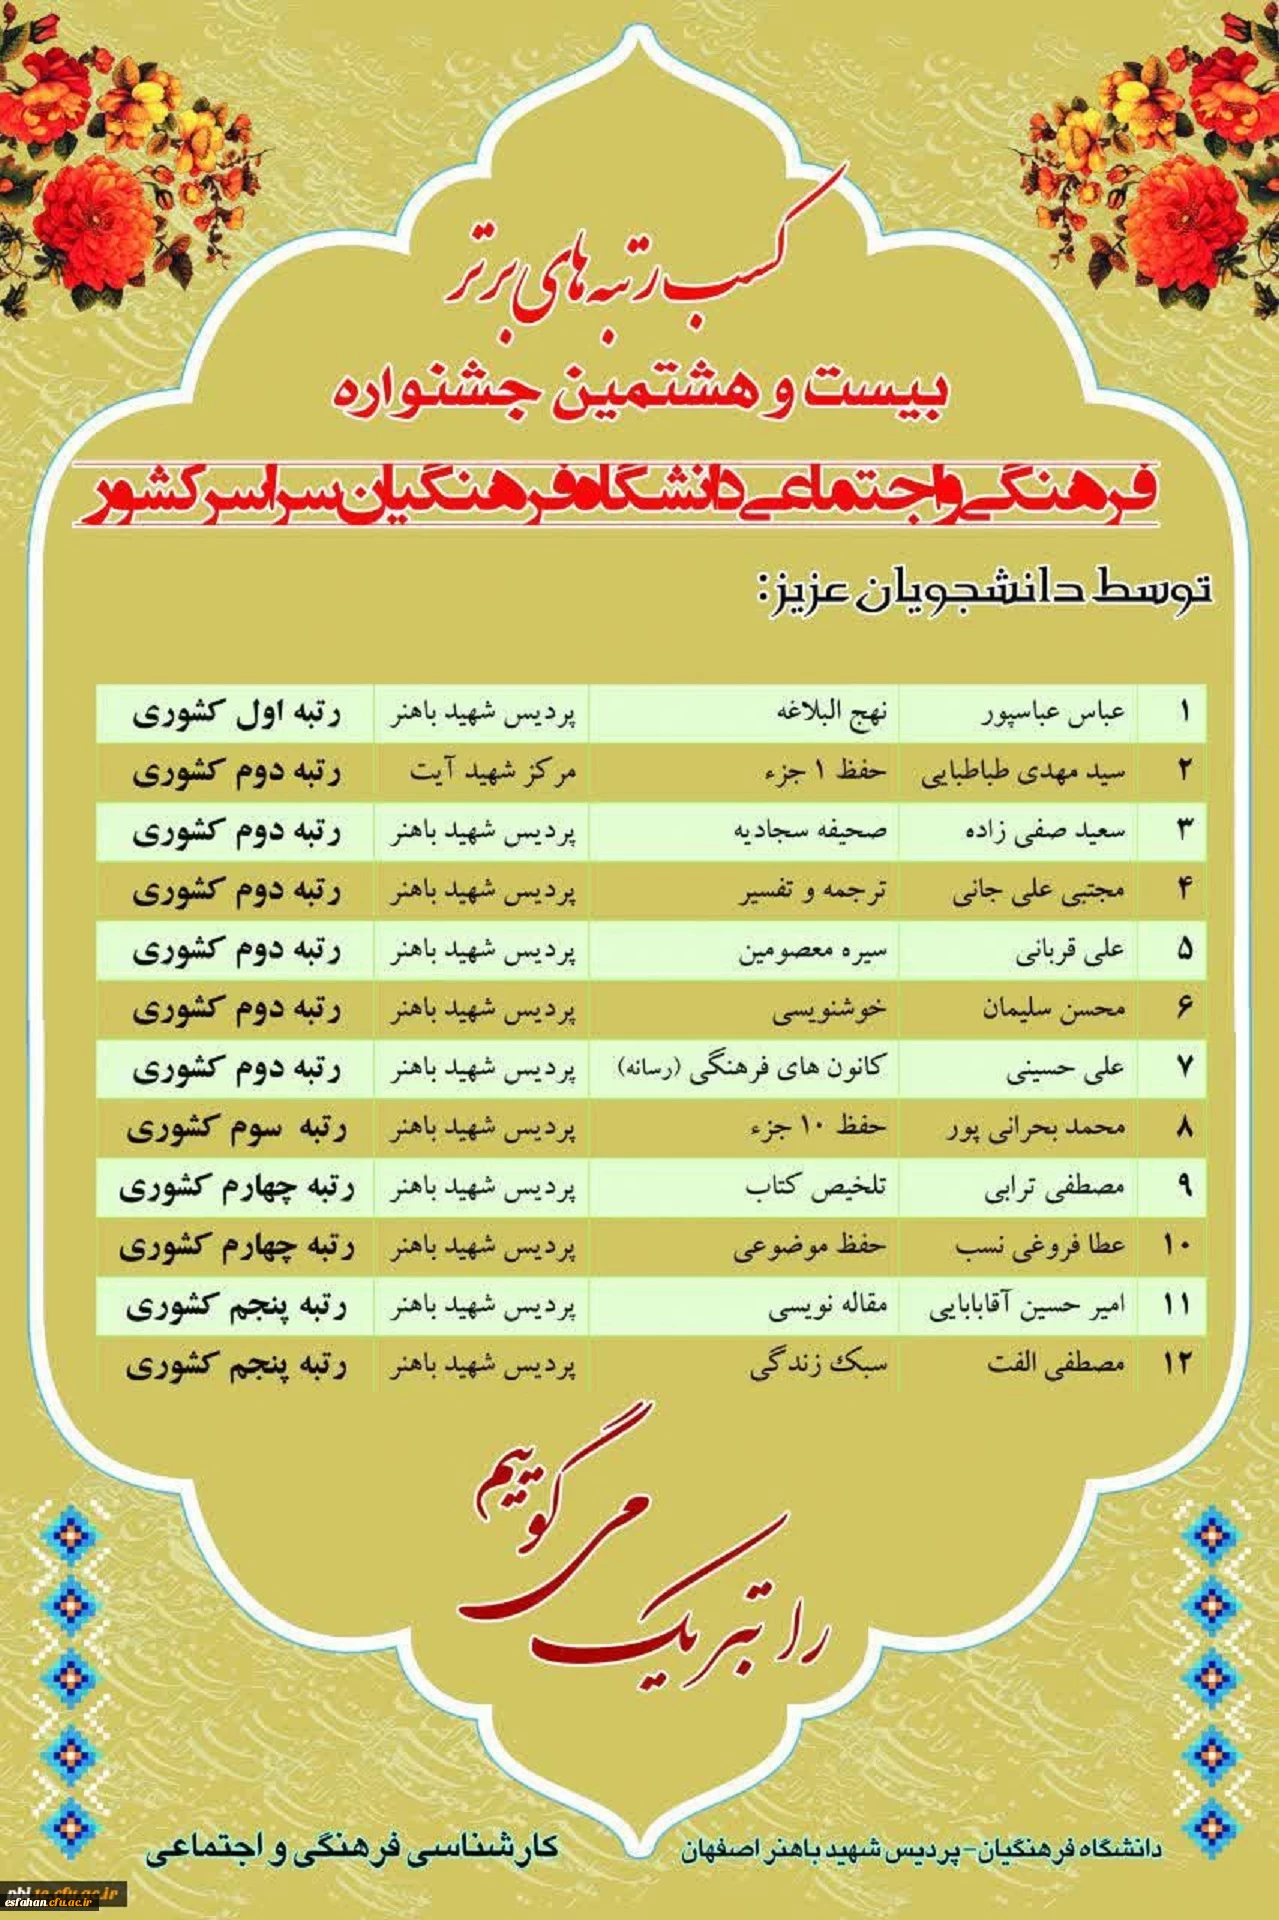 کسب رتبه های برتر
بیست و هشتمین جشنواره
فرهنگی و اجتماعی دانشگاه فرهنگیان سراسر کشور
توسط دانشجویان عزیز:
۱ عباس عباسپور نهج البلاغه پردیس شهید باهنر رتبه اول کشوری
۲ سید مهدی طباطبایی حفظ ۱ جزء مرکز شهید آیت رتبه دوم کشوری
۳ سعید صفی زاده صحیفه سجادیه پردیس شهید باهنر رتبه دوم کشوری
۴ مجتبی علی جانی ترجمه و تفسیر پردیس شهید باهنر رتبه دوم کشوری
۵ علی قربانی سیره معصومین پردیس شهید باهنر رتبه دوم کشوری
۶ محسن سلیمان خوشنویسی پردیس شهید باهنر رتبه دوم کشوری
۷ علی حسینی کانون های فرهنگی (رسانه) پردیس شهید باهنر رتبه دوم کشوری
۸ محمد بحرانی پور حفظ ۱۰ جزء پردیس شهید باهنر رتبه سوم کشوری
۹ مصطفی ترابی تلخیص کتاب پردیس شهید باهنر رتبه چهارم کشوری
۱۰ عطا فروغی نسب حفظ موضوعی پردیس شهید باهنر رتبه چهارم کشوری
۱۱ امیر حسین آقابابایی مقاله نویسی پردیس شهید باهنر رتبه پنجم کشوری
۱۲ مصطفی الفت سبک زندگی پردیس شهید باهنر رتبه پنجم کشوری
را تبریک می گوییم
دانشگاه فرهنگیان-پردیس شهید باهنر اصفهان
کارشناسی فرهنگی و اجتماعی
esfahan.cfu.ac.ir